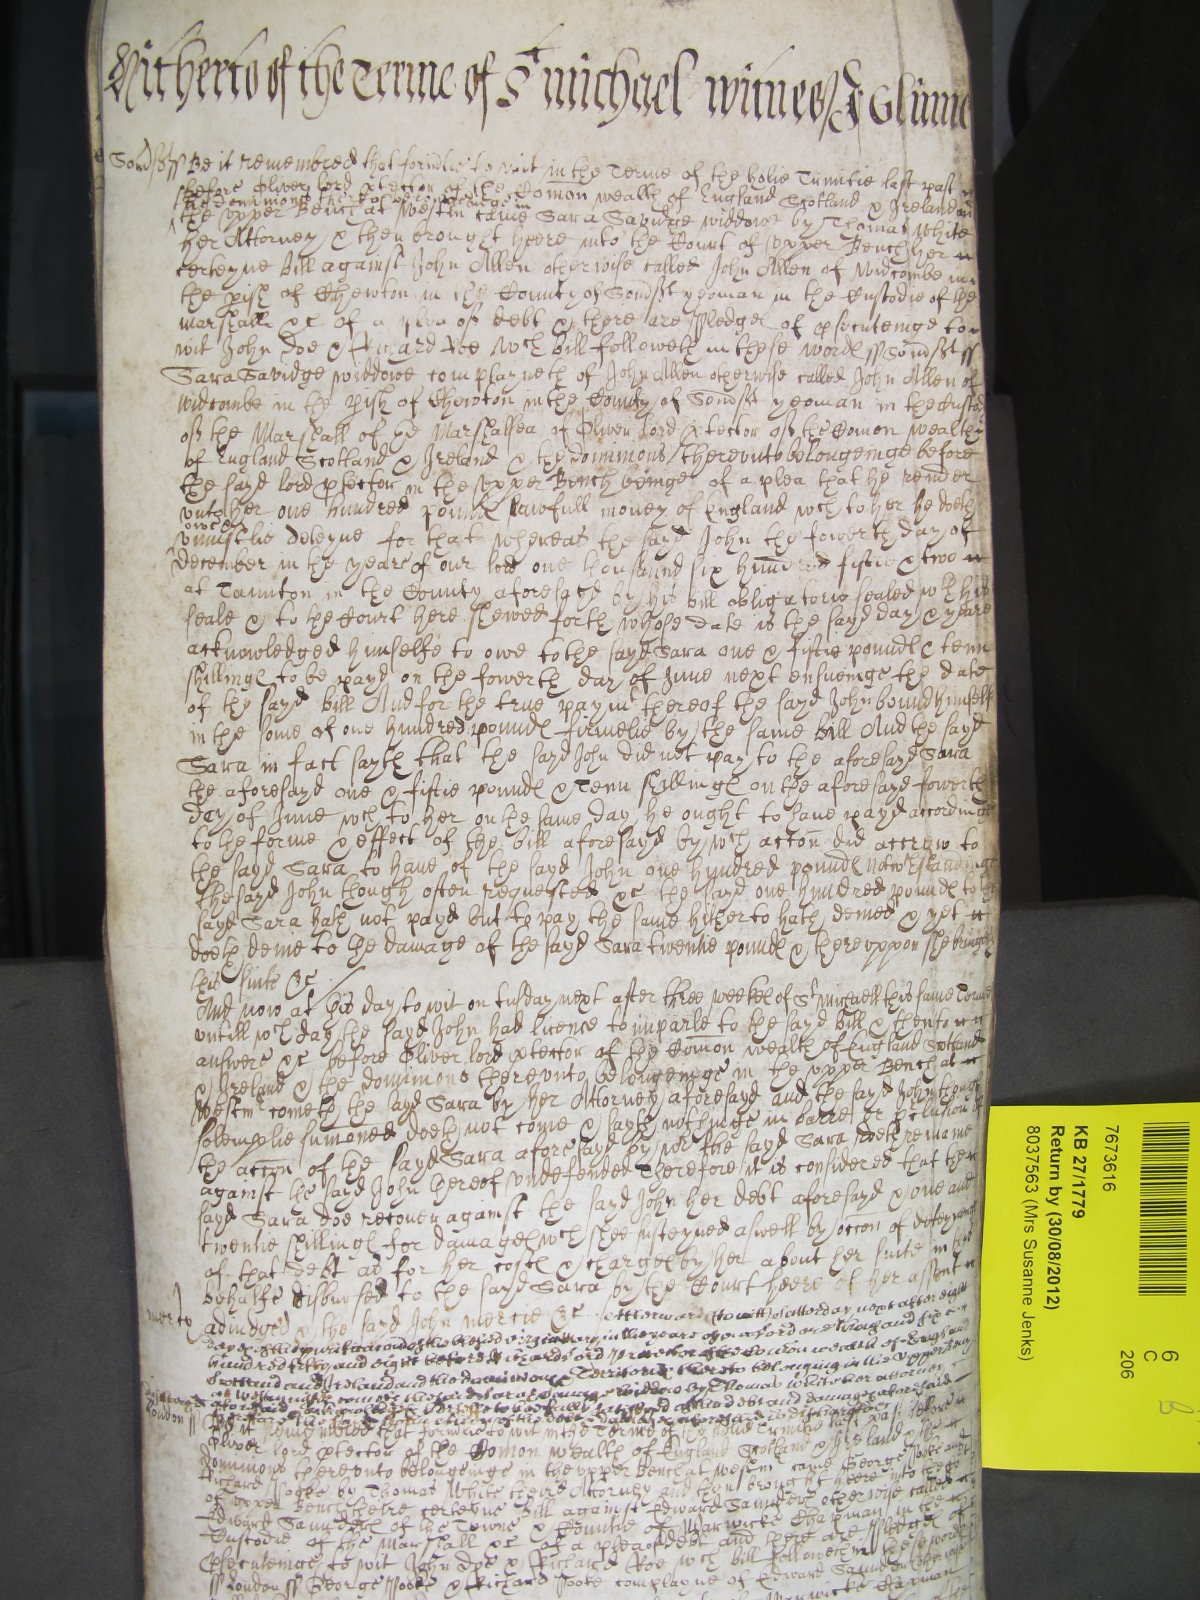 Hitherto of the Terme of St Michael witnes J Glinne
Somst ss Be it remembred that formlie to wit in the Terme of the holie Trinitie last past
before Oliver lord ptector of the Comon wealth of England Scotland & Ireland and
the dominions thereto belongeinge in
the vpper Bench at Westm came Sara Savidge widdow by Thomas White
her Attorney & then brought heere into the Court of vpper Bench her
certeyne bill against John Allen otherwise called John Allen of Widcombe in
the pish of Chewton in the County of Somst yeoman in the Custodie of the
Marshall &c of a plea of debt & there are pledges of psecuteinge to
wit John Doe & Richard Roe wch bill followeth in these wordes ss Somst ss
Sara Savidge widdowe complayneth of John Allen otherwise called John Allen of
Widcombe in the pish of Chewton in the County of Somst yeoman in the Custody
of the Marshall of the Marshalsea of Oliver lord ptector of the Comon wealth
of England Scotland & Ireland & the dominions therevnto belongeinge before
the sayd lord ptector in the vpper Bench beinge of a plea that he render
vnto her one hundred poundes lawfull money of England wch to her he doeth
owe &
vniustlie deteyne for that whereas the sayd John the fowerth day of
December in the yeare of our lord one thousand six hundred fiftie & two
at Taunton in the County aforesayd by his bill obligatorie sealed wth his
seale & to the Court here shewed forth whose date is the sayd day & yeare
acknowledged himselfe to owe to the sayd Sara one & fiftie poundes & tenn
shillinges to be payd on the fowerth day of June next ensueinge the date
of the sayd bill And for the true paymt thereof the sayd John bound himselfe
in the some of one hundred poundes firmelie by the same bill And the sayd
Sara in fact sayth that the sayd John did not pay to the aforesayd Sara
the aforesayd one & fiftie poundes & Tenn shillinges on the aforesayd fowerth
day of June wch to her on the same day he ought to have payd accordinge
to the forme & effect of the bill aforesayd by wch accon did accrew to
the sayd Sara to have of the sayd John one hundred poundes notwthstandinge
the sayd John though often requested &c the sayd one hundred poundes to the
sayd Sara hath not payd but to pay the same hitherto hath denied & yet
doeth denie to the damage of the sayd Sara twentie poundes & therevppon she bringes
this suite &c
And now at this day to wit on tusday next after three weekes of St Michaell this same Terme
vntill wch day the sayd John had licence to imparle to the sayd bill & then to
answere &c before Oliver lord ptector of the Comon wealth of England Scotland
& Ireland & the dominions therevnto belongeinge in the vpper Bench at
Westm cometh the sayd Sara by her Attorney aforesayd and the sayd John though
solemplie sumoned doeth not come & sayth nothinge in barre or pclusion of
the accon of the sayd Sara aforesayd by wch the sayd Sara doeth remaine
against the sayd John hereof vndefended Therefore it is considered that the
sayd Sara doe recover against the sayd John her debt aforesayd & one and
twentie shillinges for damages wch shee susteyned aswell by occon of deteyneinge
of that debt as for her costes & charges by her about her suite in this
behalfe disbursed to the sayd Sara by the Court heere of her assent
mercy adiudged & the sayd John in mercie &c Afterwards to witt Satterday next after eight
dayes of the purification of the blessed virgin Mary in the yeare of our Lord one thousand six
hundred fifty and eight before Richard Lord Protector of the Comon wealth of England
Scotland and Ireland and the dominions & Territories thereto belonging in the vpper bench
at Westminster cometh the said Sara Savidge widdow by Thomas White her attorney
London ss Be it remembred that formlie to wit in the Terme of the holie Trinitie last past before
Oliver lord ptector of the Comon wealth of England Scotland & Ireland & the
dominions therevnto belongeinge in the vpper Bench at Westm came George
Richard by Thomas White their Attorney and then brought heere into the
of vpper Bench theire certeyne bill against Edward Saunders otherwise called
Edward Saunders of the Towne & Countie of Warwicke Chapman in the
Custodie of the Marshall &c of a plea of debt and there are pledges of
psecuteinge to wit John Doe & Richard Roe wch bill followeth in these wordes
ss London ss George & Richard complayne of Edward Saunders otherwise
Warwicke Chapman
7673616
KB 27/1779
Return by (30/08/2012)
8037563 (Mrs Susanne Jenks)
6
C
206